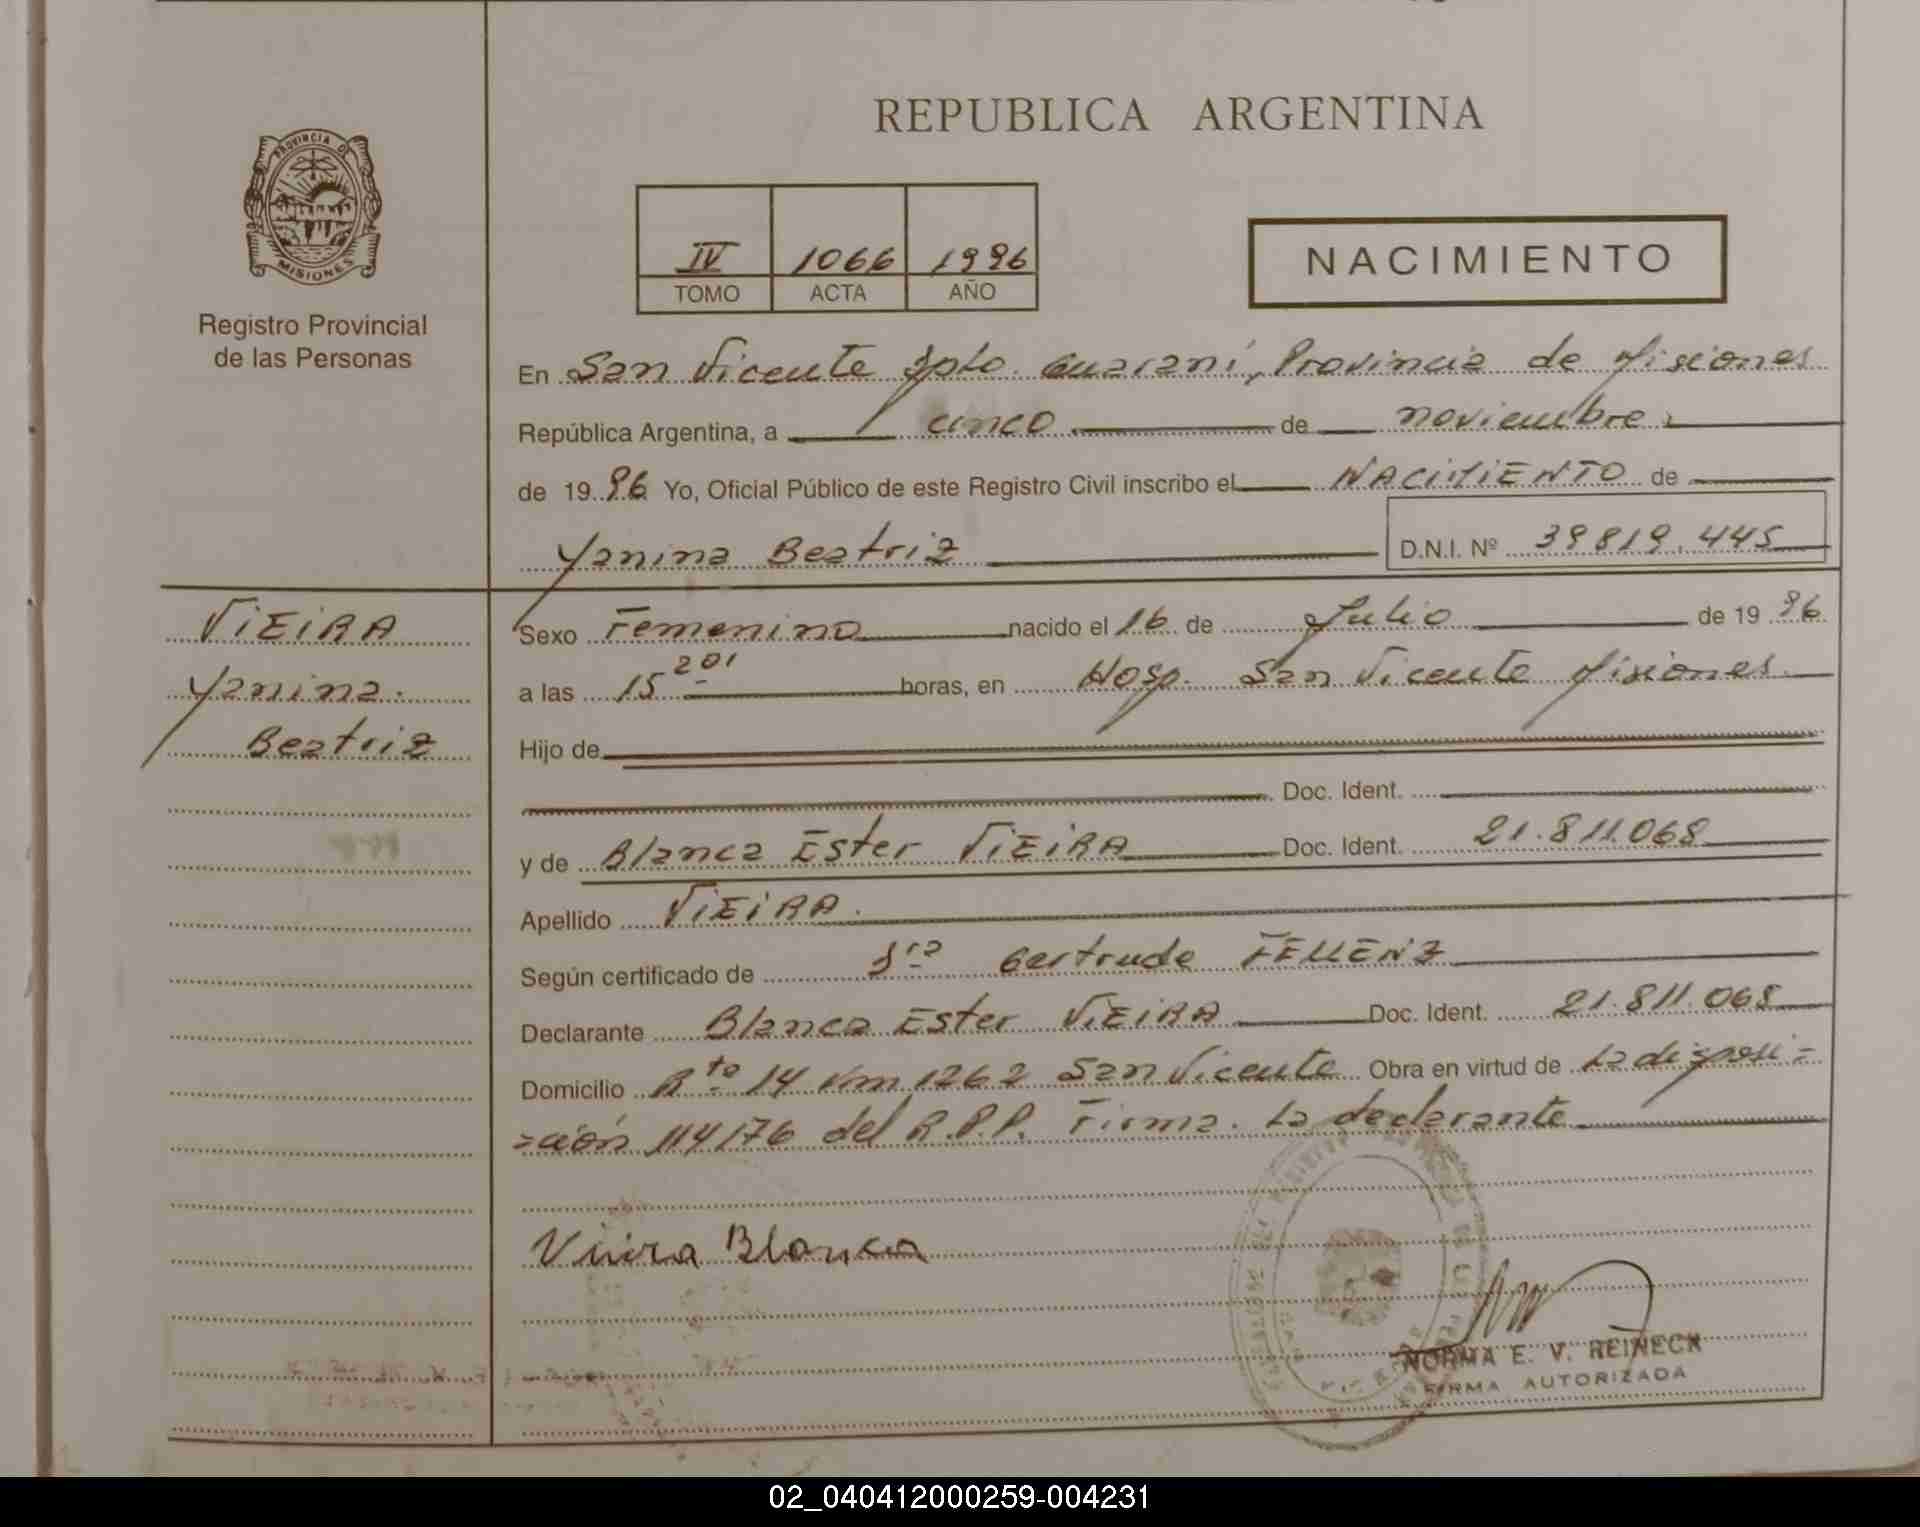 REPUBLICA ARGENTINA
PROVINCIA DE
MISIONES
Registro Provincial
de las Personas
IV 1066 1996
TOMO ACTA AÑO
NACIMIENTO
En San Vicente Dpto. Guaraní, Provincia de Misiones
República Argentina, a cinco de noviembre
de 1996 Yo, Oficial Público de este Registro Civil inscribo el NACIMIENTO de
Yanina Beatriz D.N.I. Nº 39819.445
VIEIRA
Yanina
Beatriz
Sexo Femenino nacido el 16 de Julio de 1996
a las 15 20' horas, en Hosp. San Vicente Misiones
Hijo de
Doc. Ident.
y de Blanca Ester VIEIRA Doc. Ident. 21.811.068
Apellido VIEIRA
Según certificado de Dra Gertrude
Declarante Blanca Ester VIEIRA Doc. Ident. 21.811.068
Domicilio Rta 14 Km 1262 San Vicente Obra en virtud de La disposi=
=ción 114/76 del R.P.P. Firma. La declarante
Vieira Blanca
NORMA E. V. REINECK
FIRMA AUTORIZADA
02_040412000259-004231